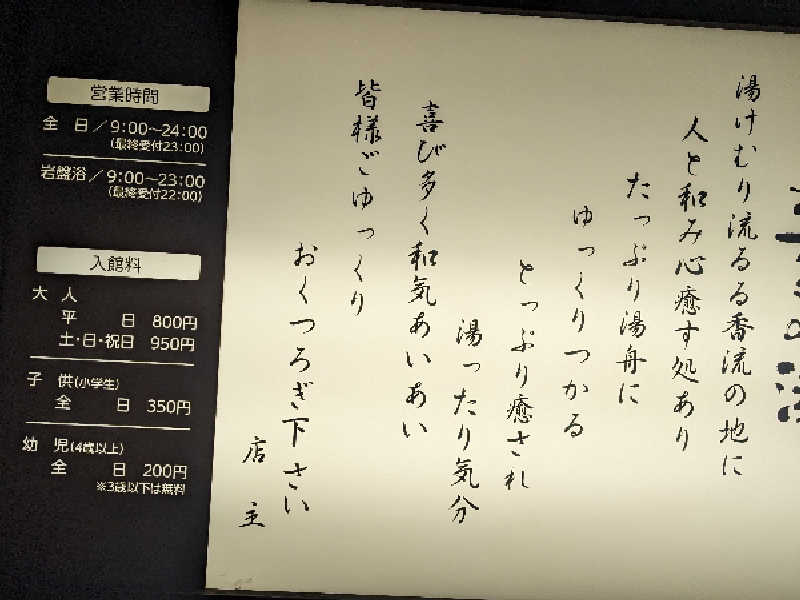 営業時間
全 日／9:00〜24:00
(最終受付23:00)
岩盤浴／9:00〜23:00
(最終受付22:00)
入館料
大 人
平 日 800円
土・日・祝日 950円
子 供(小学生)
全 日 350円
幼 児(4歳以上)
全 日 200円
※3歳以下は無料
湯けむり流るる香流の地に
人と和み心癒す処あり
たっぷり湯舟に
ゆっくりつかる
とっぷり癒され
湯ったり気分
喜び多く和気あいあい
皆様ごゆっくり
おくつろぎ下さい
店主